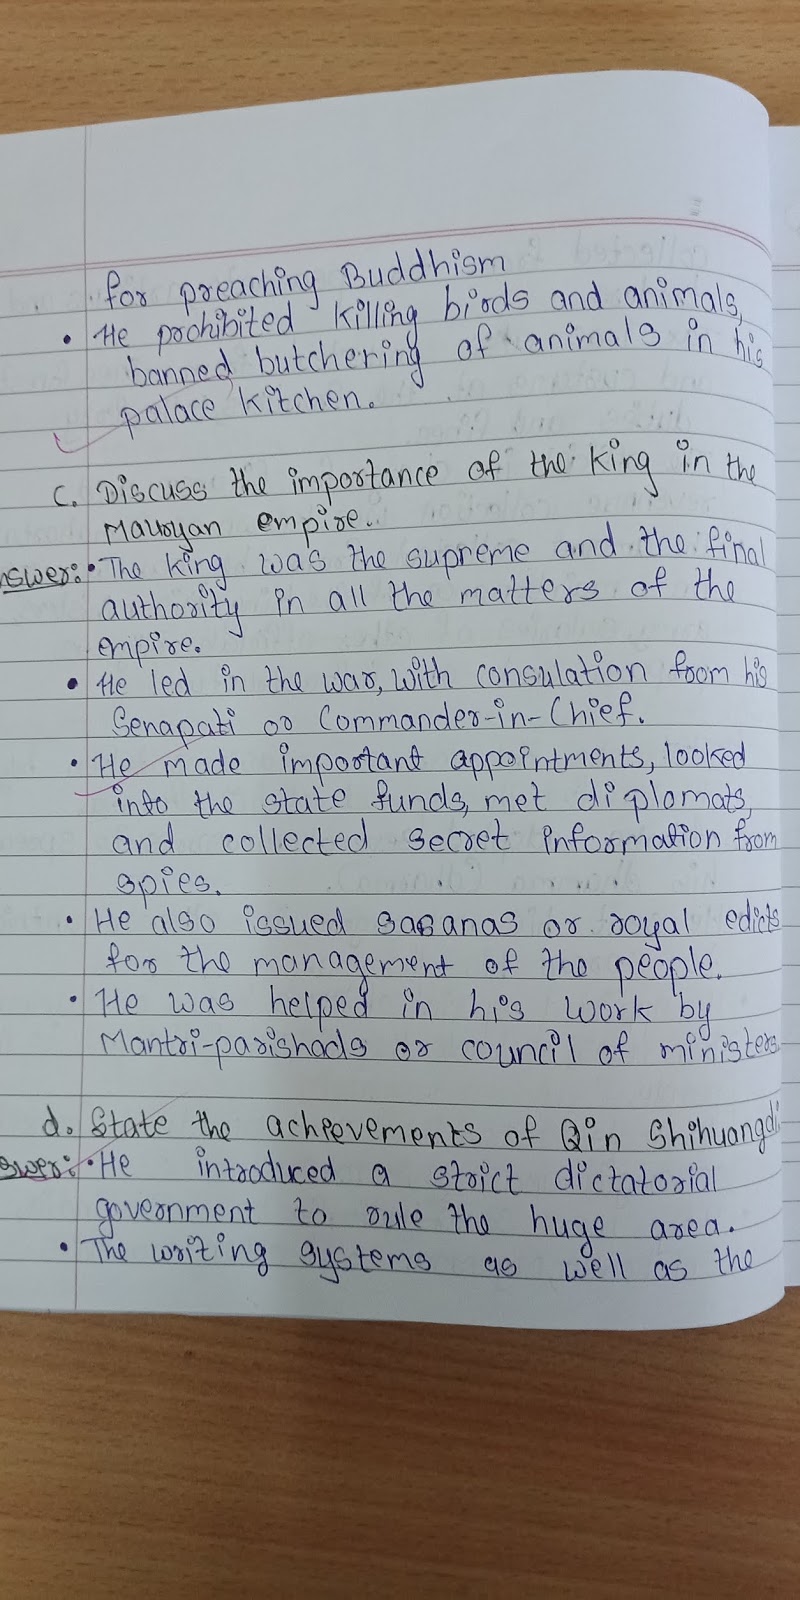 for preaching Buddhism
• He prohibited killing birds and animals,
banned butchering of animals in his
palace kitchen.
c. Discuss the importance of the king in the
Mauryan empire.
nswer: • The king was the supreme and the final
authority in all the matters of the
empire.
• He led in the war, with consulation from his
Senapati or Commander-in-Chief.
• He made important appointments, looked
into the state funds, met diplomats,
and collected secret information from
spies.
• He also issued sasanas or royal edicts
for the management of the people.
• He was helped in his work by
Mantri-parishads or council of ministers.
d. State the acheevements of Qin Shihuangdi.
swer: • He introduced a strict dictatorial
government to rule the huge area.
• The writing systems as well as the